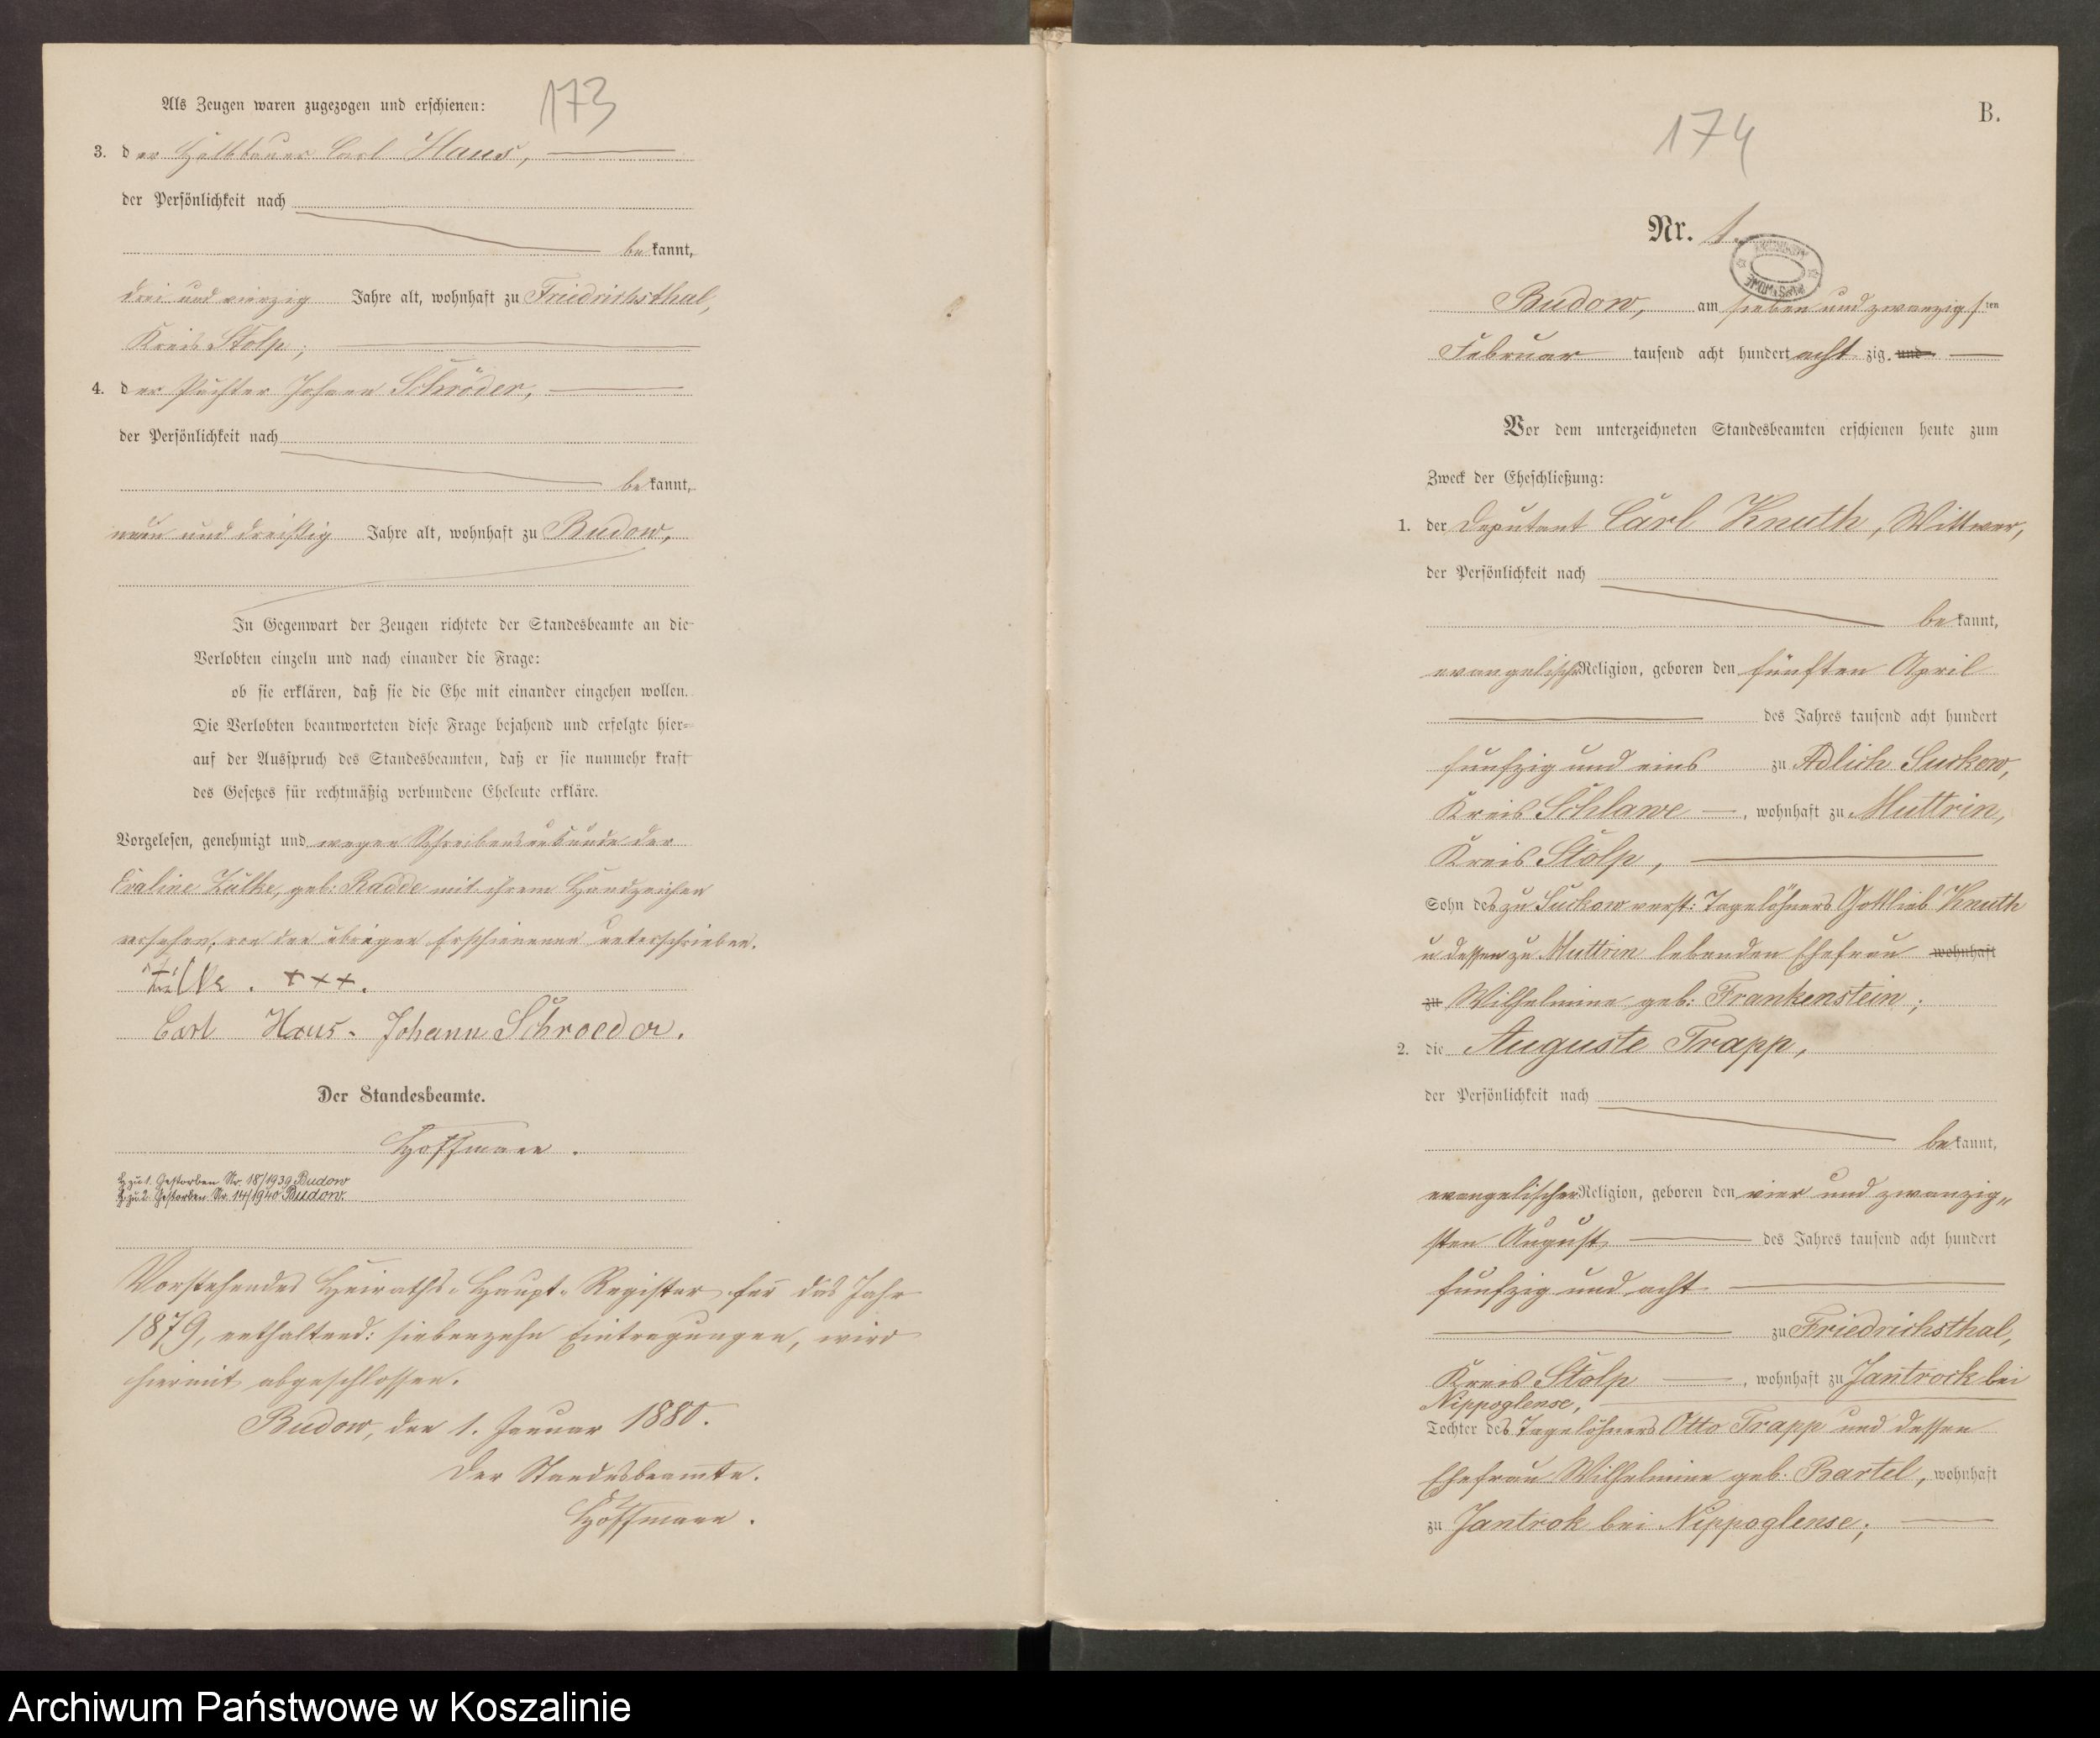 173
Als Zeugen waren zugezogen und erschienen:
3. der Halbbauer Carl Haus,
der Persönlichkeit nach
bekannt,
drei und vierzig Jahre alt, wohnhaft zu Friedrichsthal,
Kreis Stolp;
4. der Pächter Johann Schröder,
der Persönlichkeit nach
bekannt,
neun und dreißig Jahre alt, wohnhaft zu Budow,
In Gegenwart der Zeugen richtete der Standesbeamte an die
Verlobten einzeln und nach einander die Frage:
ob sie erklären, daß sie die Ehe mit einander eingehen wollen.
Die Verlobten beantworteten diese Frage bejahend und erfolgte hier-
auf der Ausspruch des Standesbeamten, daß er sie nunmehr kraft
des Gesetzes für rechtmäßig verbundene Eheleute erkläre.
Vorgelesen, genehmigt und wegen Schreibensunkunde der
Zülke, geb: Radde mit ihrem Handzeichen
versehen, von den übrigen Erschienenen unterschrieben.
+++.
Carl Haus. Johann Schroeder.
Der Standesbeamte.
Hoffmann.
zu 1. Gestorben Nr. 18/1939 Budow
zu 2. Gestorben Nr. 14/1940 Budow.
Vorstehendes Heiraths-Haupt-Register für das Jahr
1879, enthaltend: siebenzehn Eintragungen, wird
hiermit abgeschlossen.
Budow, den 1. Januar 1880.
Der Standesbeamte.
Hoffmann.
174
B.
Nr. 1.
Budow, am sieben und zwanzigsten
Februar tausend acht hundert achtzig und
Vor dem unterzeichneten Standesbeamten erschienen heute zum
Zweck der Eheschließung:
1. der Deputant Carl Knuth, Wittwer,
der Persönlichkeit nach
bekannt,
evangelischer Religion, geboren den fünften April
des Jahres tausend acht hundert
funfzig und eins zu Adlich Suckow,
Kreis Schlawe, wohnhaft zu Muttrin,
Kreis Stolp,
Sohn des zu Suckow verst: Tagelöhners Gottlieb Knuth
u dessen zu Muttrin lebenden Ehefrau wohnhaft
zu Wilhelmine geb: Frankenstein;
2. die Auguste Trapp,
der Persönlichkeit nach
bekannt,
evangelischer Religion, geboren den vier und zwanzig-
sten August des Jahres tausend acht hundert
funfzig und acht
zu Friedrichsthal,
Kreis Stolp, wohnhaft zu Jantrock bei
Nippoglense,
Tochter des Tagelöhners Otto Trapp und dessen
Ehefrau Wilhelmine geb: Bartel, wohnhaft
zu Jantrok bei Nippoglense;
Archiwum Państwowe w Koszalinie